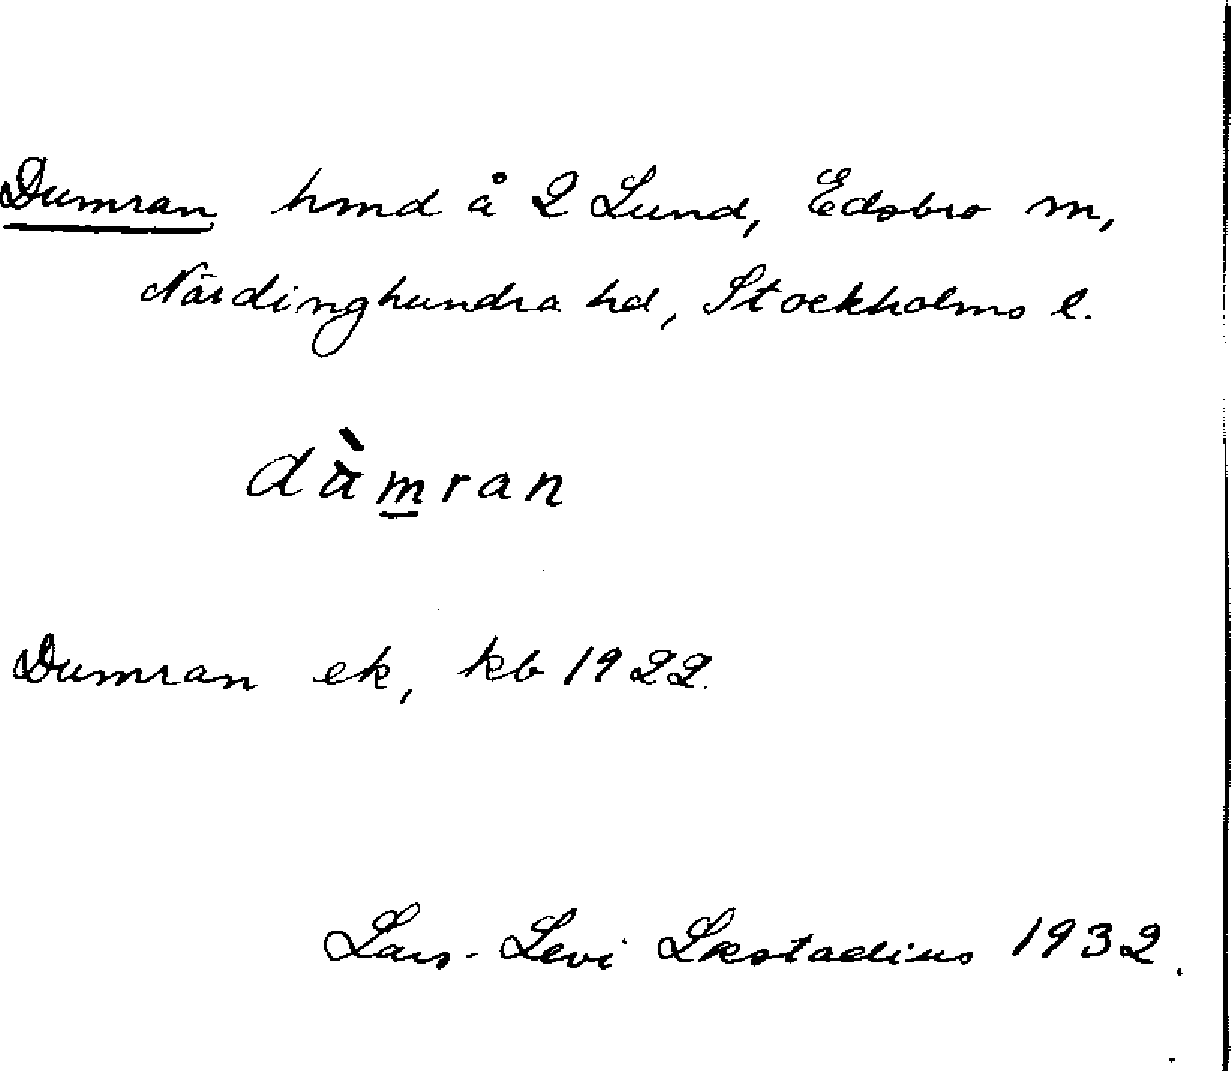 Dumran hmd å 2 Lund, Edsbro sn,
Närdinghundra hd, Stockholms l.
dàmran
Dumran ek, kb 1922.
Lars-Levi Læstadius 1932.